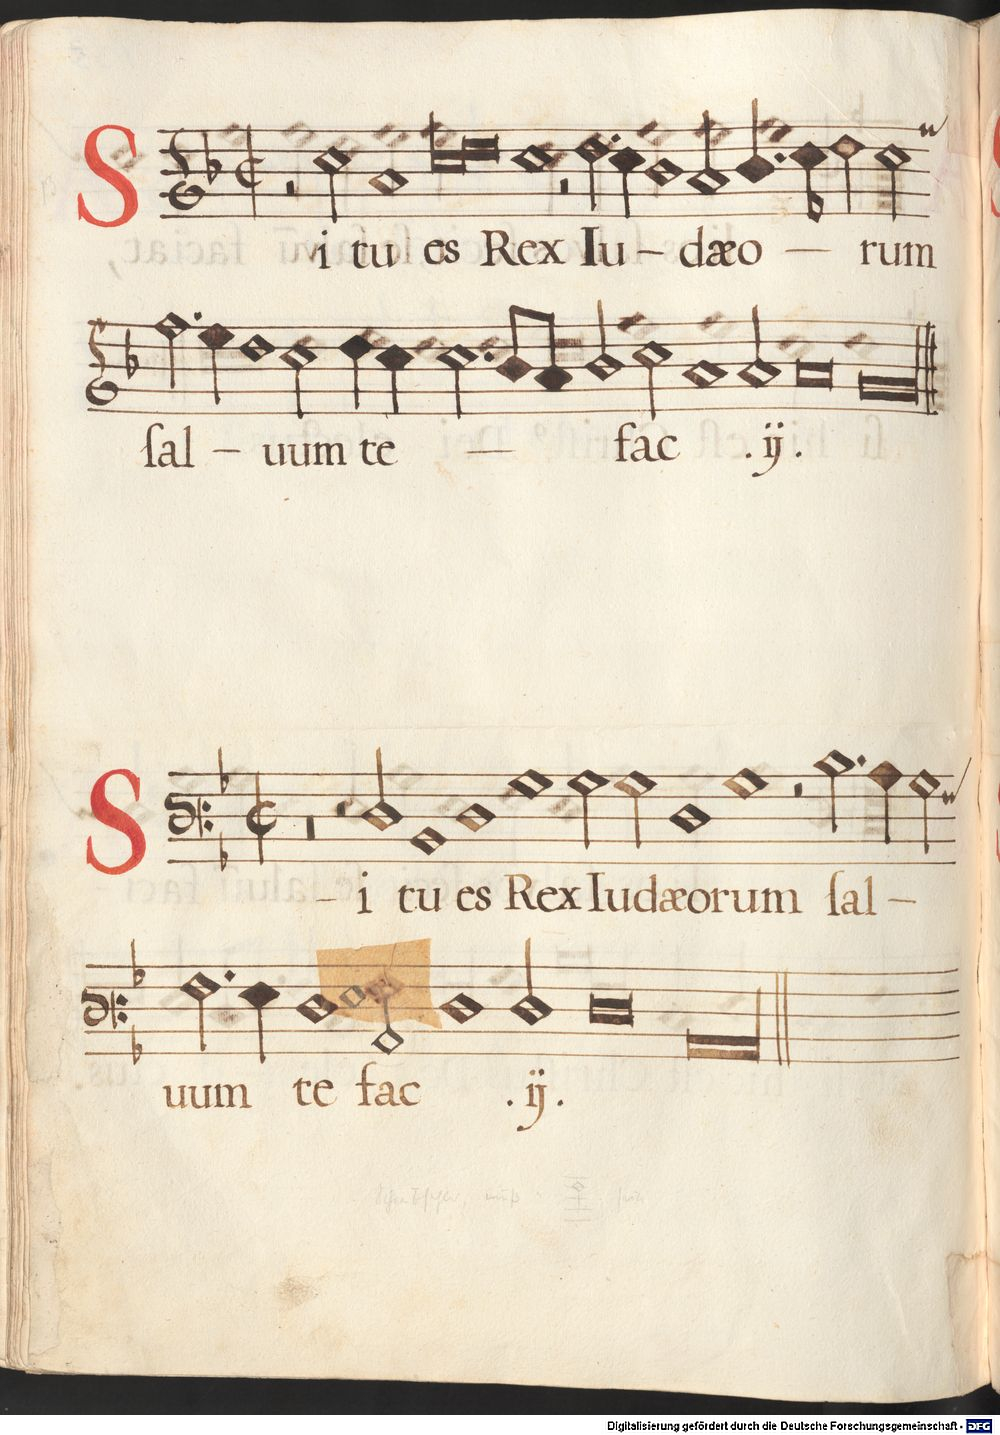 Si tu es Rex Iu – dæo — rum
ſal – uum te — fac .ij.
S – i tu es Rex Iudæorum ſal –
uum te fac .ij.
Digitalisierung gefördert durch die Deutsche Forschungsgemeinschaft - DFG